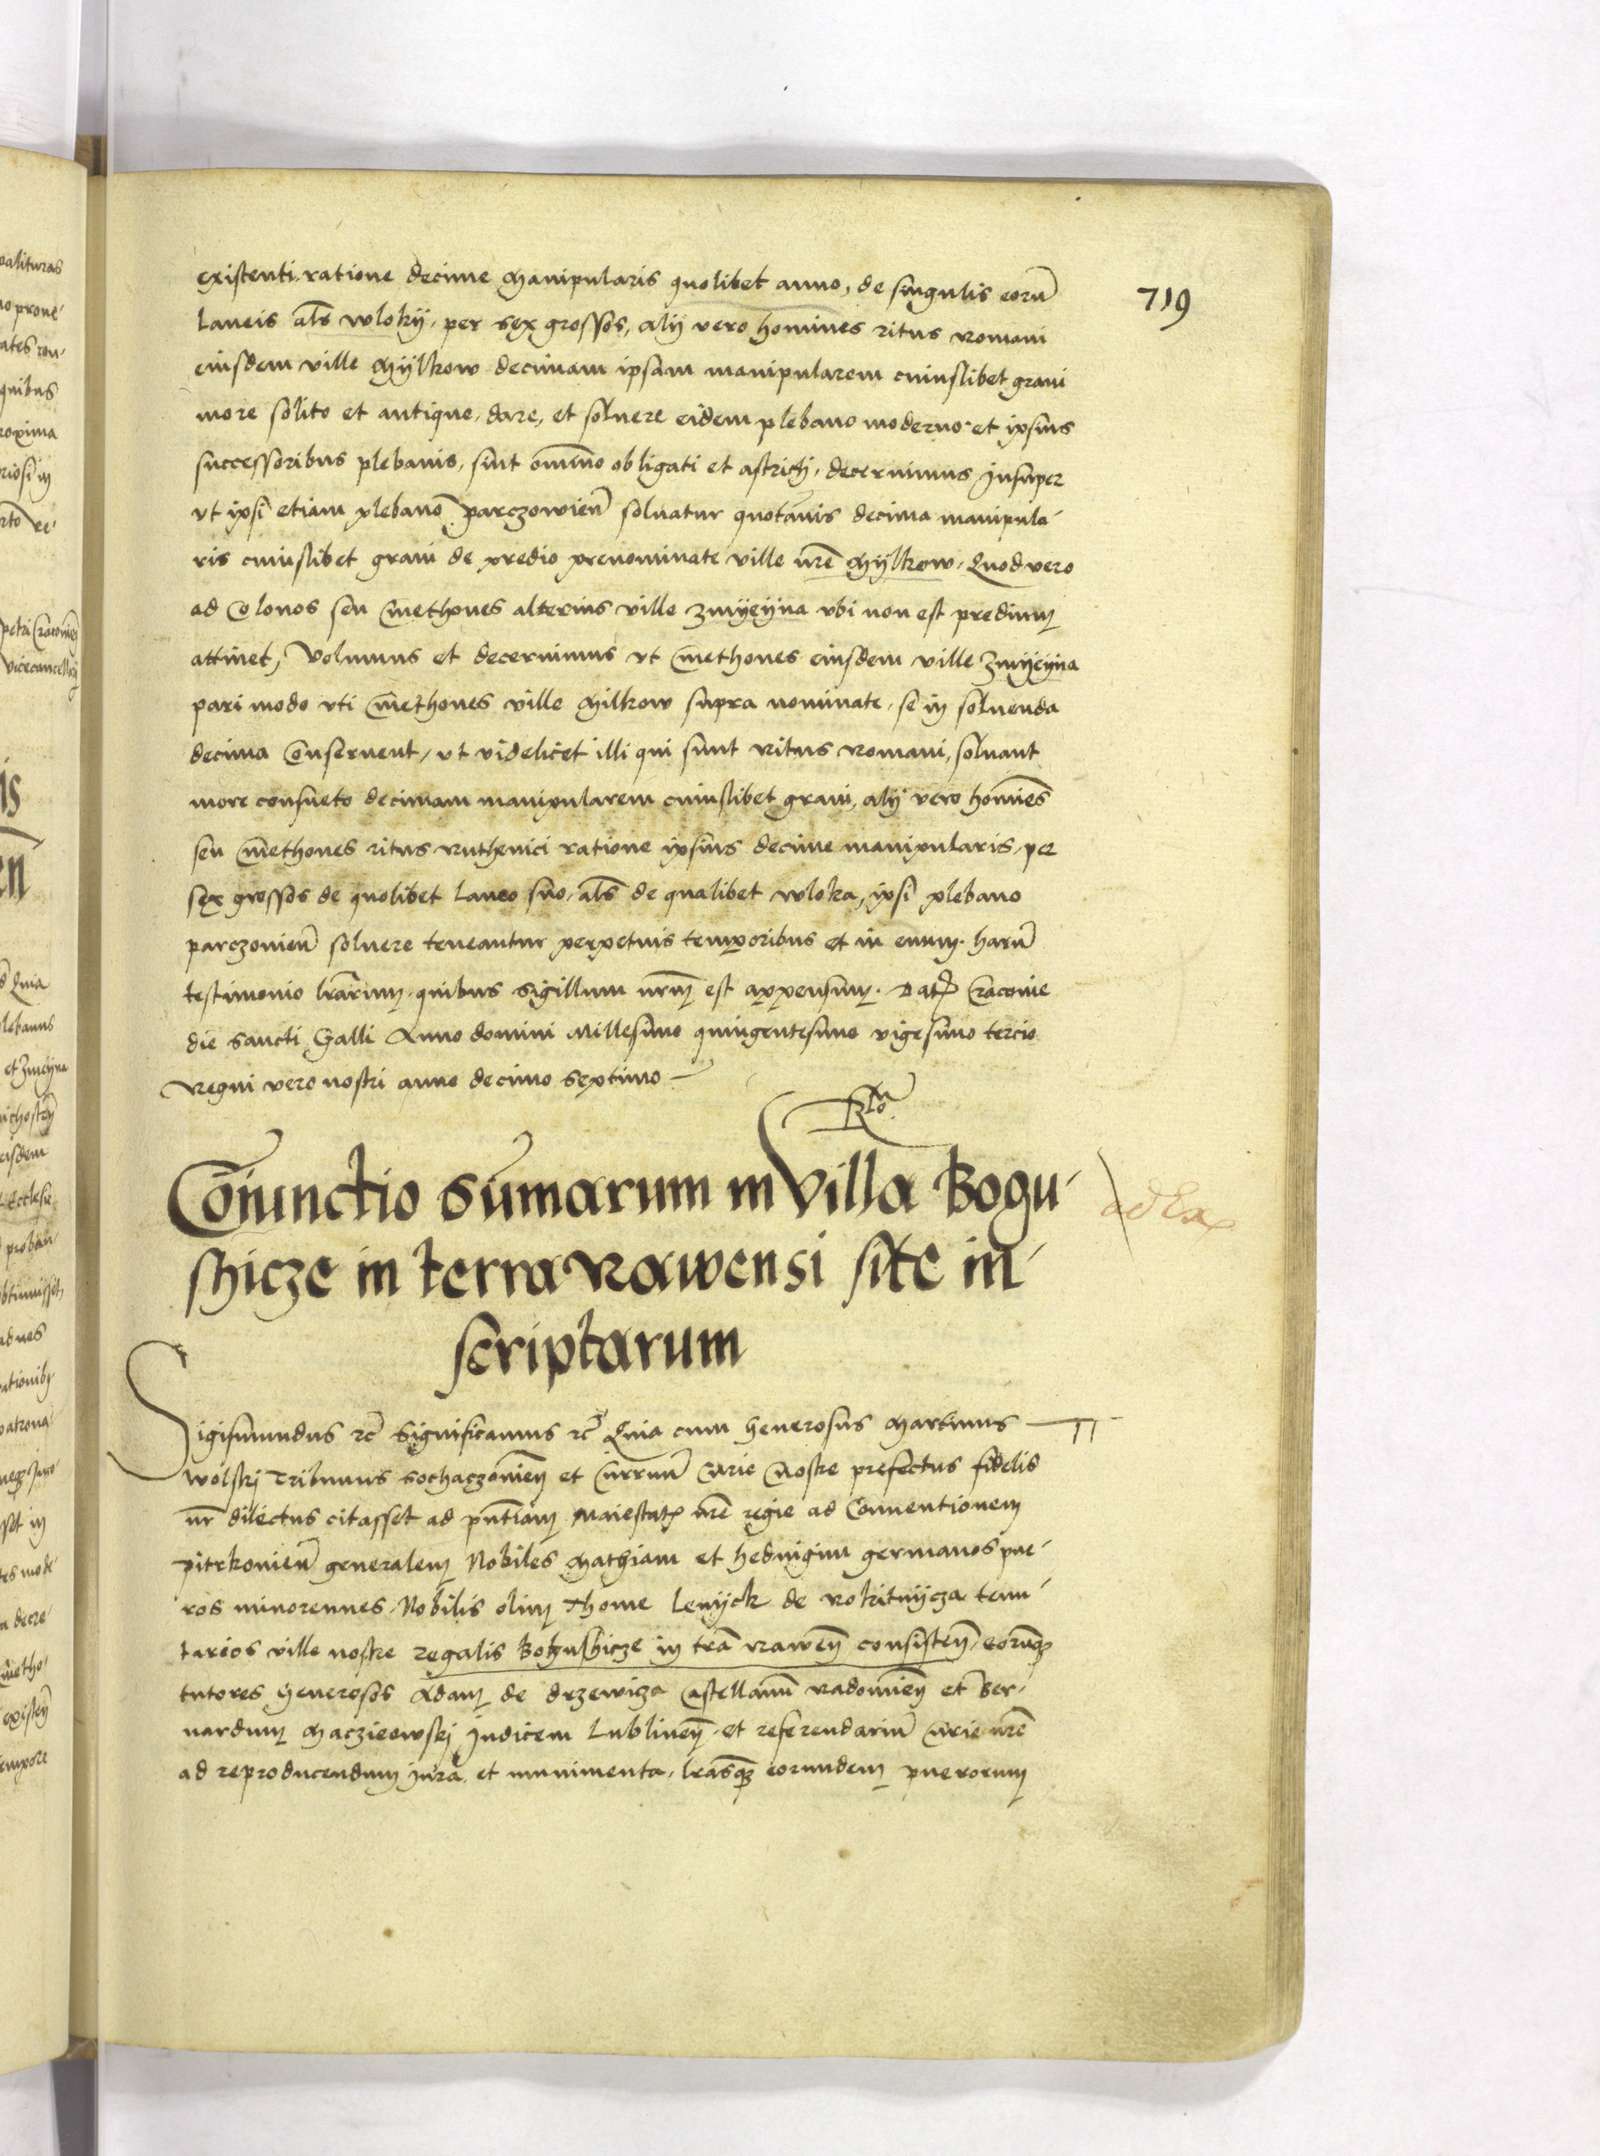 719
existenti ratione decime manipularis quolibet anno, de singulis eorū
laneis als wloky, per sex grossos, alij vero homines ritus romani
eiusdem ville Mylkow decimam ipsam manipularem cuiuslibet grani
more solito et antiquo, dare, et soluere eidem plebano moderno et ipsius
successoribus plebanis, sint omnino obligati et astricti, decernimus insuper
vt ipsi etiam plebano parczowien̄ soluatur quotannis decima manipula-
ris cuiuslibet grani de predio prenominate ville nrē Mylkow. Quod vero
ad Colonos seu Cmethones alterius ville Zmyeyna vbi non est predium
attinet, volumus et decernimus vt Cmethones eiusdem ville Zmyeyna
pari modo vti Cmethones ville Milkow supra nominate, se in soluenda
decima Conseruent, vt videlicet illi qui sunt ritus romani, soluant
more consueto decimam manipularem cuiuslibet grani, alij vero homines
seu Cmethones ritus ruthenici ratione ipsius decime manipularis, per
sex grossos de quolibet laneo suo, als de qualibet wloka, ipsi plebano
parczouien̄ soluere teneantur perpetuis temporibus et in euum. harū
testimonio lrārum, quibus sigillum nrm̄ est appensum. Dat. Cracouie
die sancti Galli Anno domini Millesimo quingentesimo vigesimo tercio
regni vero nostri anno decimo septimo
Rto.
Coniunctio sūmarum in villa Bogu-
schicze in terra rawensi site in-
scriptarum
ad Ex
Sigismundus rc̄ Significamus rc̄ Quia cum Generosus Martinus
wolskj Tribunus sochaczouien̄ et Curruū Curie nostre prefectus fidelis
nr̄ dilectus citasset ad pn̄tiam Maiestat. nrē regie ad Conuentionem
pitrkouien̄ generalem Nobiles Mathiam et hedvigim germanos pue-
ros minorennes, Nobilis olim Thome Lenyck de rokitnycza tenu-
tarios ville nostre regalis Boguschicze in trā rawen̄ consisten̄, eorumq
tutores Generosos Adam de drzewicza Castellanū radomien̄ et Ber-
nardum Maczieowskj Judicem Lublinen̄, et referendariū Curie nrē
ad reproducendum iura, et munimenta, lrāsq eorundem puerorum